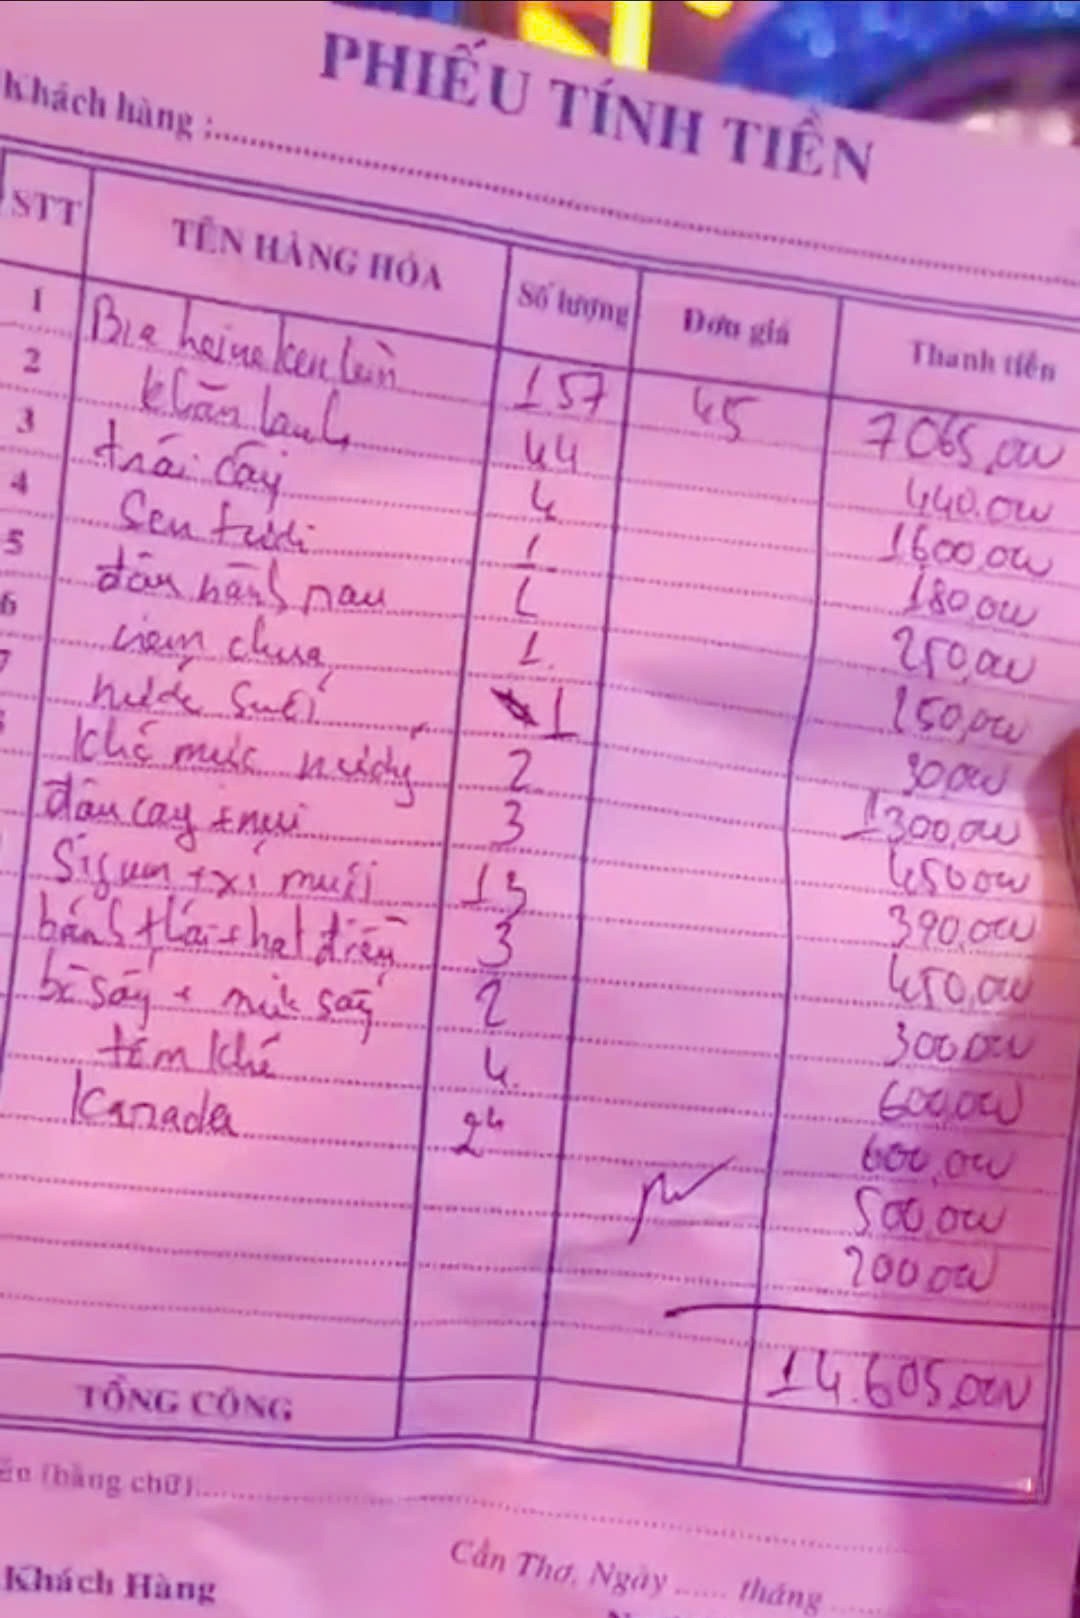 PHIẾU TÍNH TIỀN
Khách hàng :
STT TÊN HÀNG HÓA Số lượng Đơn giá Thanh tiền
1 Bia heineken lùn 157 45 7065,000
2 khăn lạnh 44 440.000
3 trái cây 4 1600,000
4 Sen tươi 1 180,000
5 đậu hành nau 1 250,000
6 chua 1. 250,000
7 nước suối 1 30,000
8 Khô mực nướng 2 1300,000
đậu cay + nui 3 450,000
Sigum + xí muội 13 390,000
bánh + hạt điều 3 450,000
bò sấy + mít sấy 2 300,000
tôm khô 4. 600,000
Kanada 24 600,000
500,000
200,000
14.605,000
TỔNG CỘNG
(bằng chữ)
Cần Thơ, Ngày ...... tháng
Khách Hàng